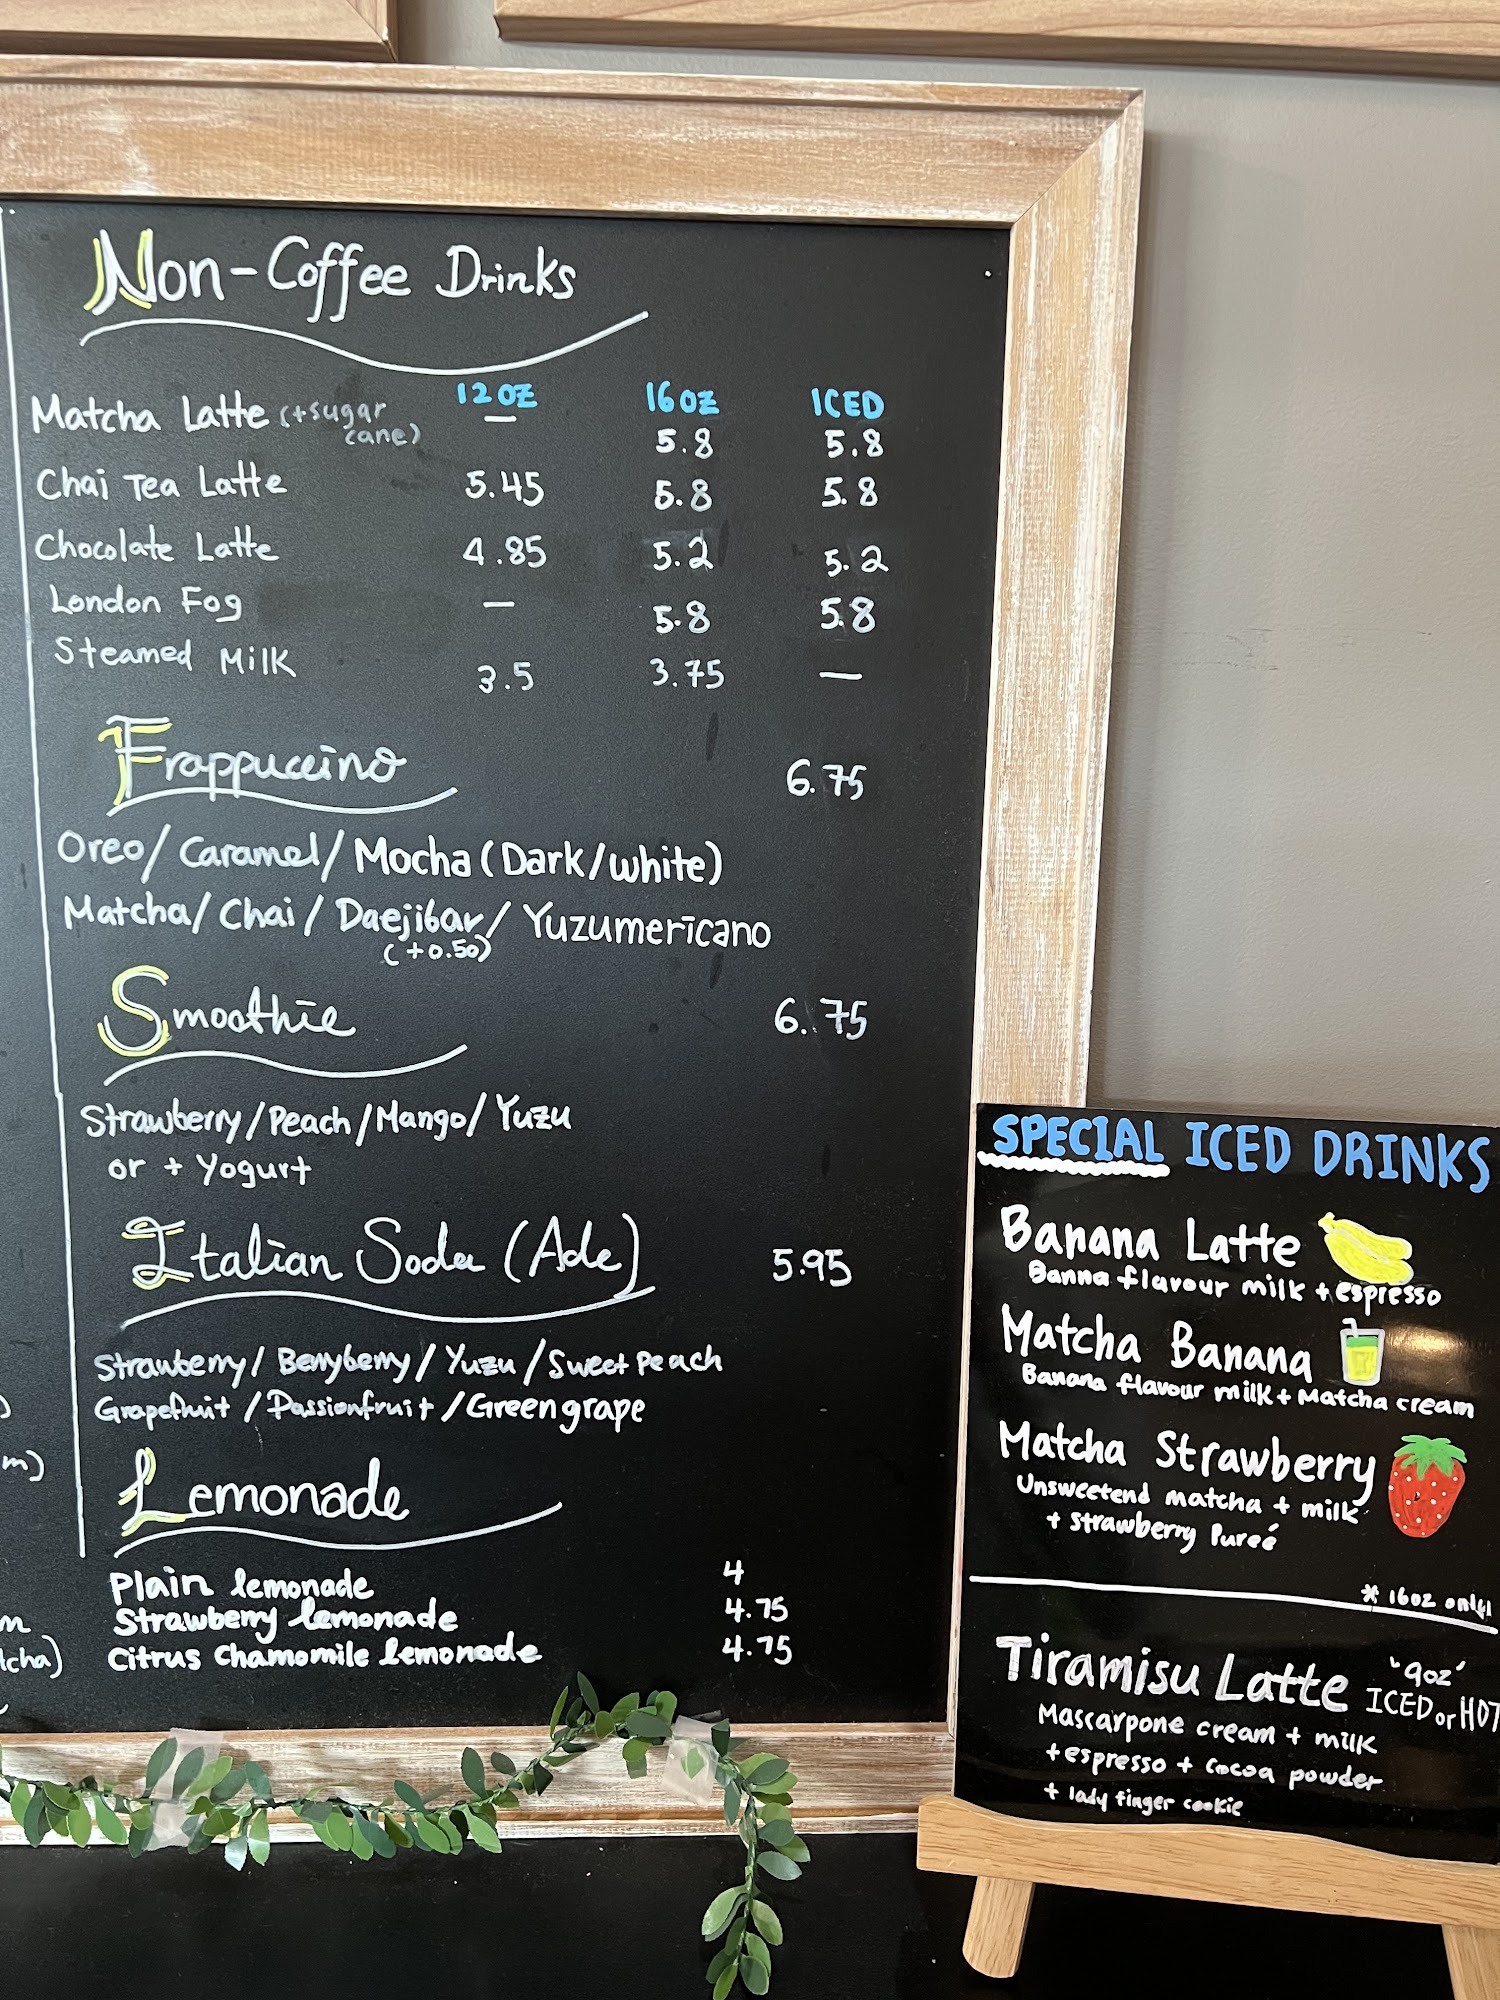 Non-Coffee Drinks
12OZ 16OZ ICED
Matcha Latte (+sugar cane) — 5.8 5.8
Chai Tea Latte 5.45 5.8 5.8
Chocolate Latte 4.85 5.2 5.2
London Fog — 5.8 5.8
Steamed Milk 3.5 3.75 —
Frappuccino 6.75
Oreo/Caramel/Mocha (Dark/white)
Matcha/Chai/Daejibar/Yuzumericano
(+0.50)
Smoothie 6.75
Strawberry/Peach/Mango/Yuzu
or + Yogurt
Italian Soda (Ade) 5.95
Strawberry/Berryberry/Yuzu/Sweet Peach
Grapefruit/Passionfruit/Green grape
Lemonade
Plain lemonade 4
Strawberry lemonade 4.75
Citrus Chamomile lemonade 4.75
m)
SPECIAL ICED DRINKS
Banana Latte
Banna flavour milk + espresso
Matcha Banana
Banana flavour milk + Matcha cream
Matcha Strawberry
Unsweetend matcha + milk
+ Strawberry Pureé
* 16oz only!
Tiramisu Latte "9oz"
ICED or HOT
Mascarpone cream + milk
+ espresso + cocoa powder
+ lady finger cookie